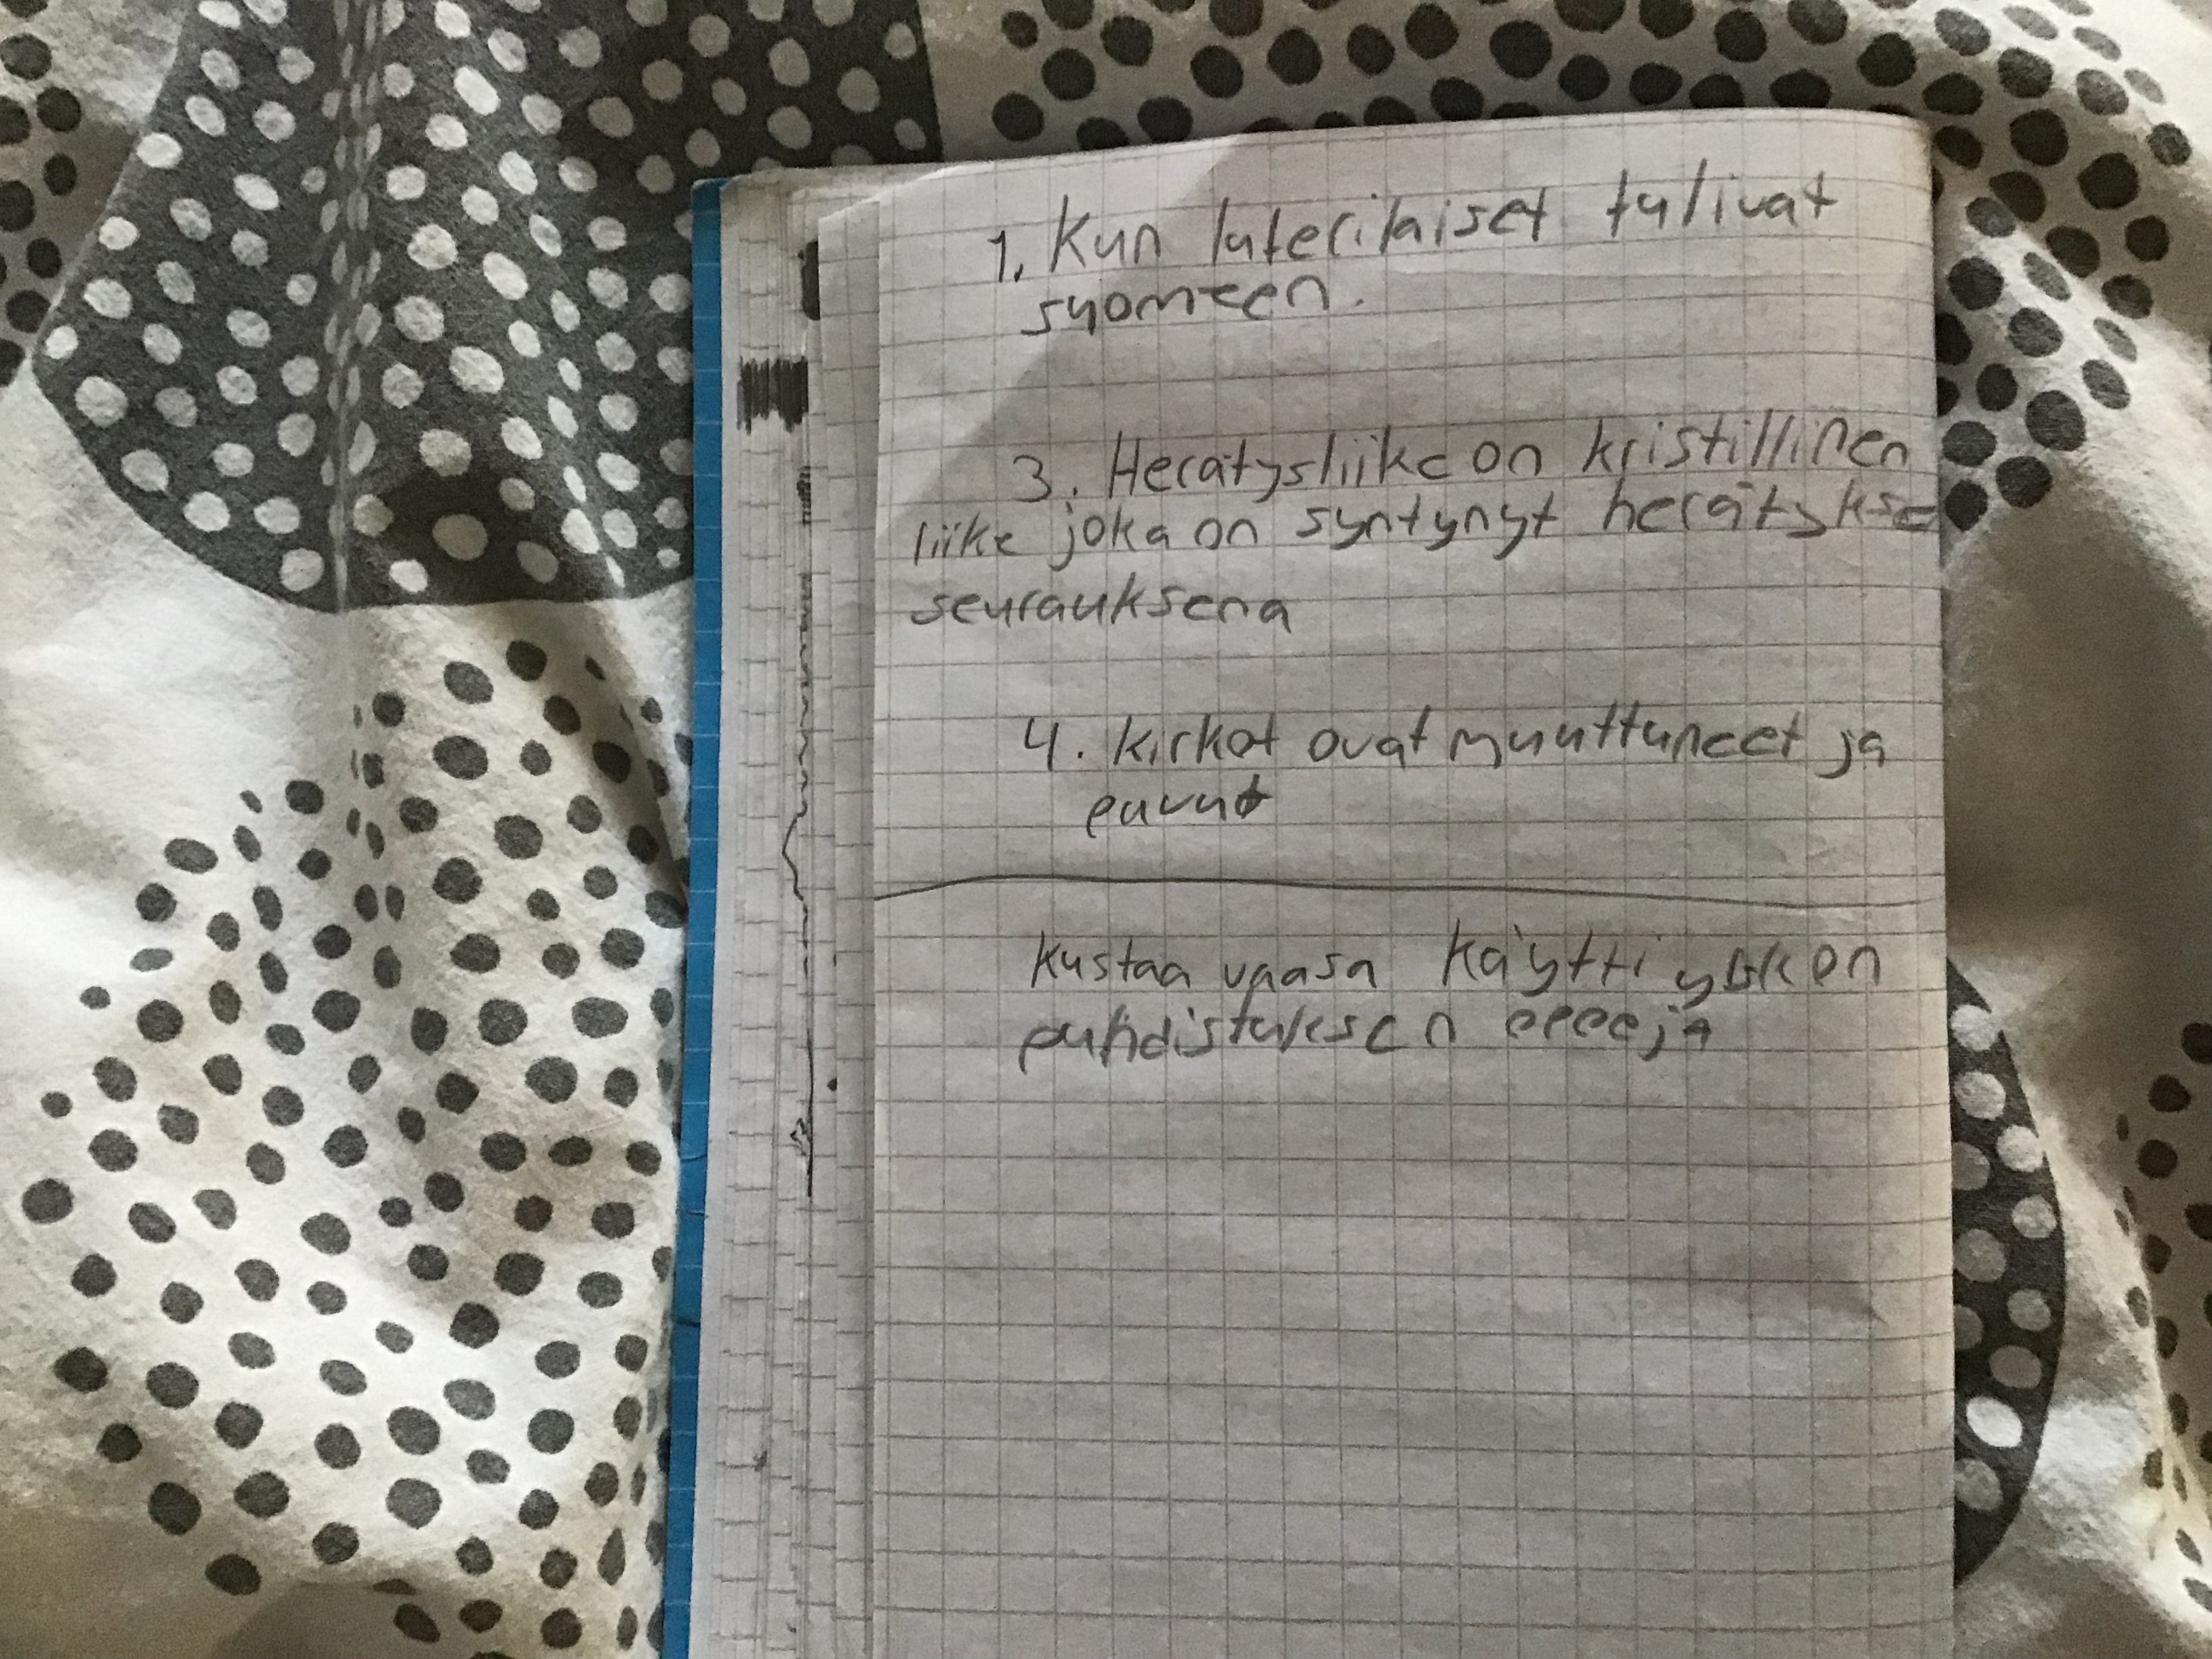 1. Kun luterilaiset tulivat
suomeen.
3. Herätysliike on kristillinen
liike joka on syntynyt herätykse
seurauksena
4. kirkot ovat muuttuneet ja
puvut
Kustaa vaasa käytti
puhdistuksen oppeja